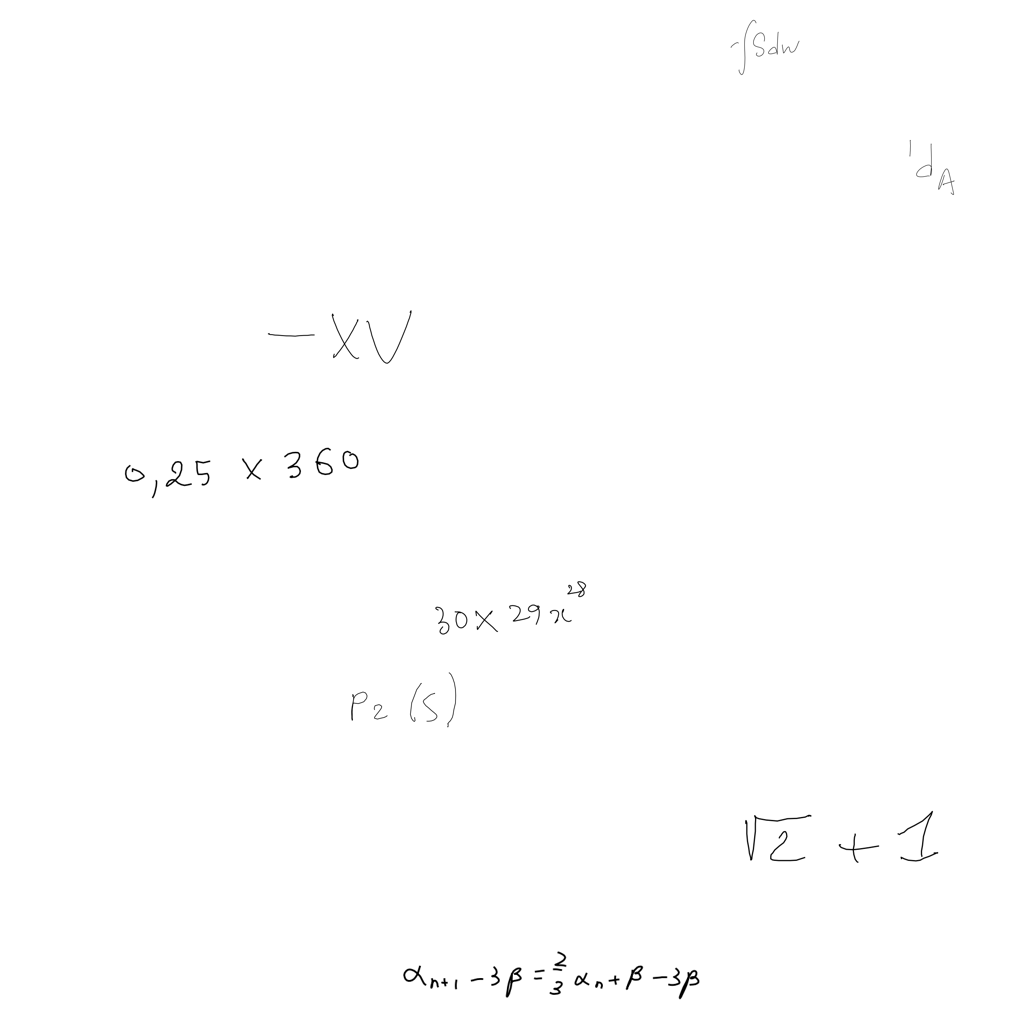 -∫Sdw
'd_A
-XV
0,25 × 360
30 × 29x^{28}
P2 (S)
√2 + 1
α_{n+1} - 3β = \frac{2}{3} α_n + β - 3β